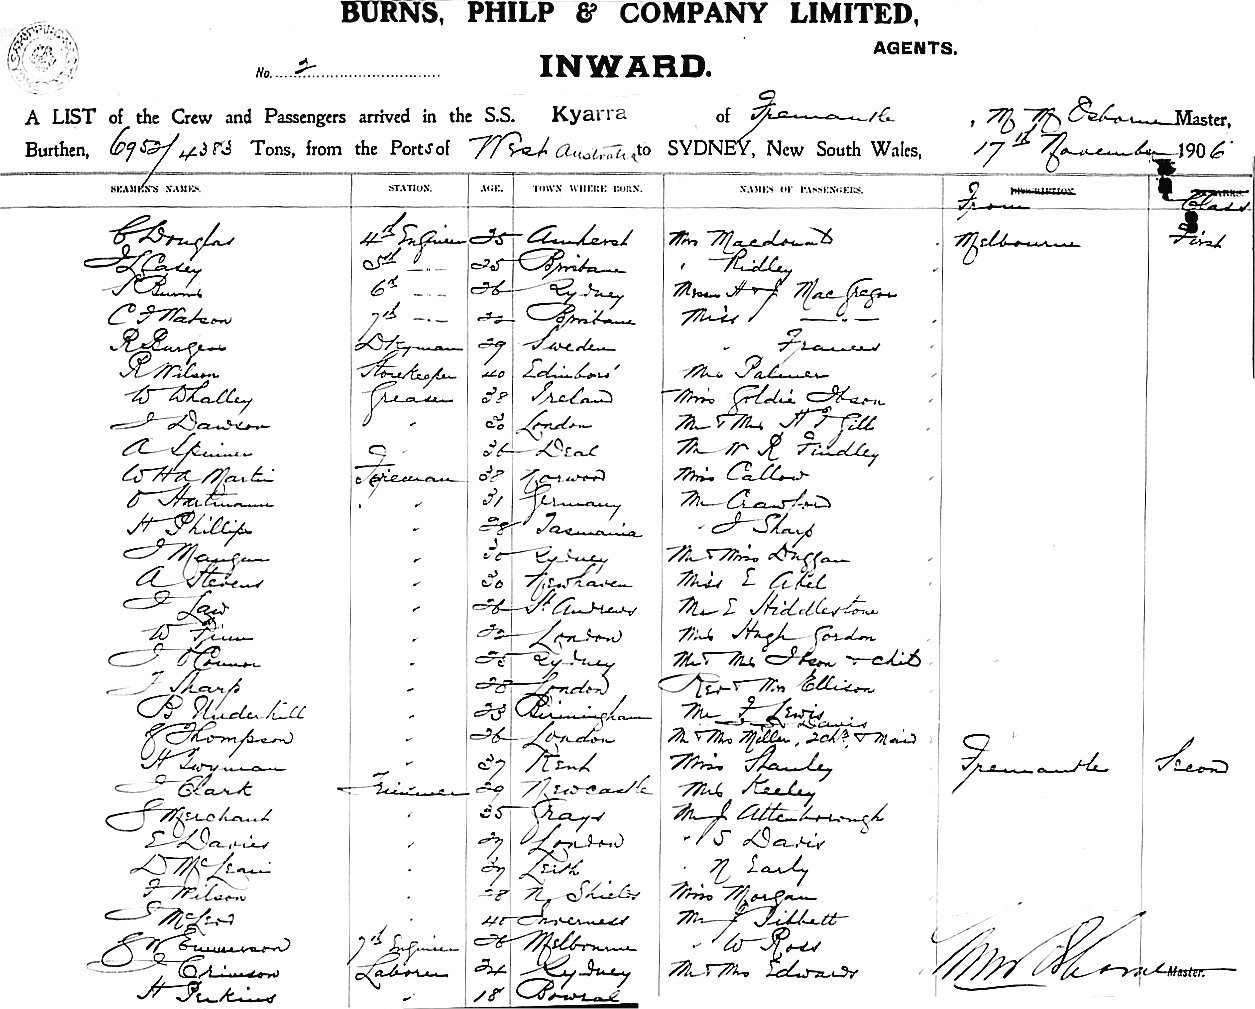 BURNS, PHILP & COMPANY LIMITED,
AGENTS.
No. 2 INWARD.
A LIST of the Crew and Passengers arrived in the S.S. Kyarra of Fremantle, M M Osborne Master,
Burthen, 6952/4383 Tons, from the Ports of West Australia to SYDNEY, New South Wales, 17th November 1906
SEAMEN'S NAMES. STATION. AGE. TOWN WHERE BORN. NAMES OF PASSENGERS. DESCRIPTION. REMARKS.
From Class
C Douglas 4th Engineer 25 Amherst Mrs Macdounald Melbourne First
J L Casey 5th " 25 Brisbane " Ridley
S Burns 6th " 26 Sydney Misses H & J MacGregor
C J Watson 7th " 22 Brisbane Miss "
R Burgess Dkyman 29 Sweden " Frances
R Wilson Storekeeper 40 Edinboro' Mrs Palmer
W Whalley Greaser 38 Ireland Miss Goldie Ibson
J Dawson " 30 London Mr & Mrs H T Gill
A Spinner " 36 Deal Mr W R Findley
W H A Martin Fireman 38 Norwood Miss Callow
O Hartmann " 31 Germany Mr Crawford
H Phillips " 28 Tasmania " J Sharp
J Mangan " 30 Sydney Mr & Miss Duggan
A Stevens " 30 Newhaven Miss E Abel
J Law " 26 St Andrews Mr E Hiddlestone
W Finn " 22 London Mrs Hugh Gordon
J O'Connor " 25 Sydney Mr & Mrs Ibson & child
T Sharp " 28 London Rev & Mrs Ellison
B Underhill " 23 Birmingham Mr F Lewis
Davis
J Thompson " 26 London Mr & Mrs Miller, 2 chn & Maid
H Gwyman " 37 Kent Miss Stanley Fremantle Second
J Clark Trimmer 29 Newcastle Mrs Keeley
G Merchant " 35 Grays Mr J Attenborough
E Davies " 27 London " S Davis
D McLean " 27 Leith " N Early
J Wilson " 28 N. Shields Miss Morgan
J McLeod " 40 Inverness Mr J Tibbett
G W Emmerson 7th Engineer 26 Melbourne " W Ross
J Crimson Laborer 24 Sydney Mr & Mrs Edwards
M M Osborne Master.
H Perkins " 18 Bowral